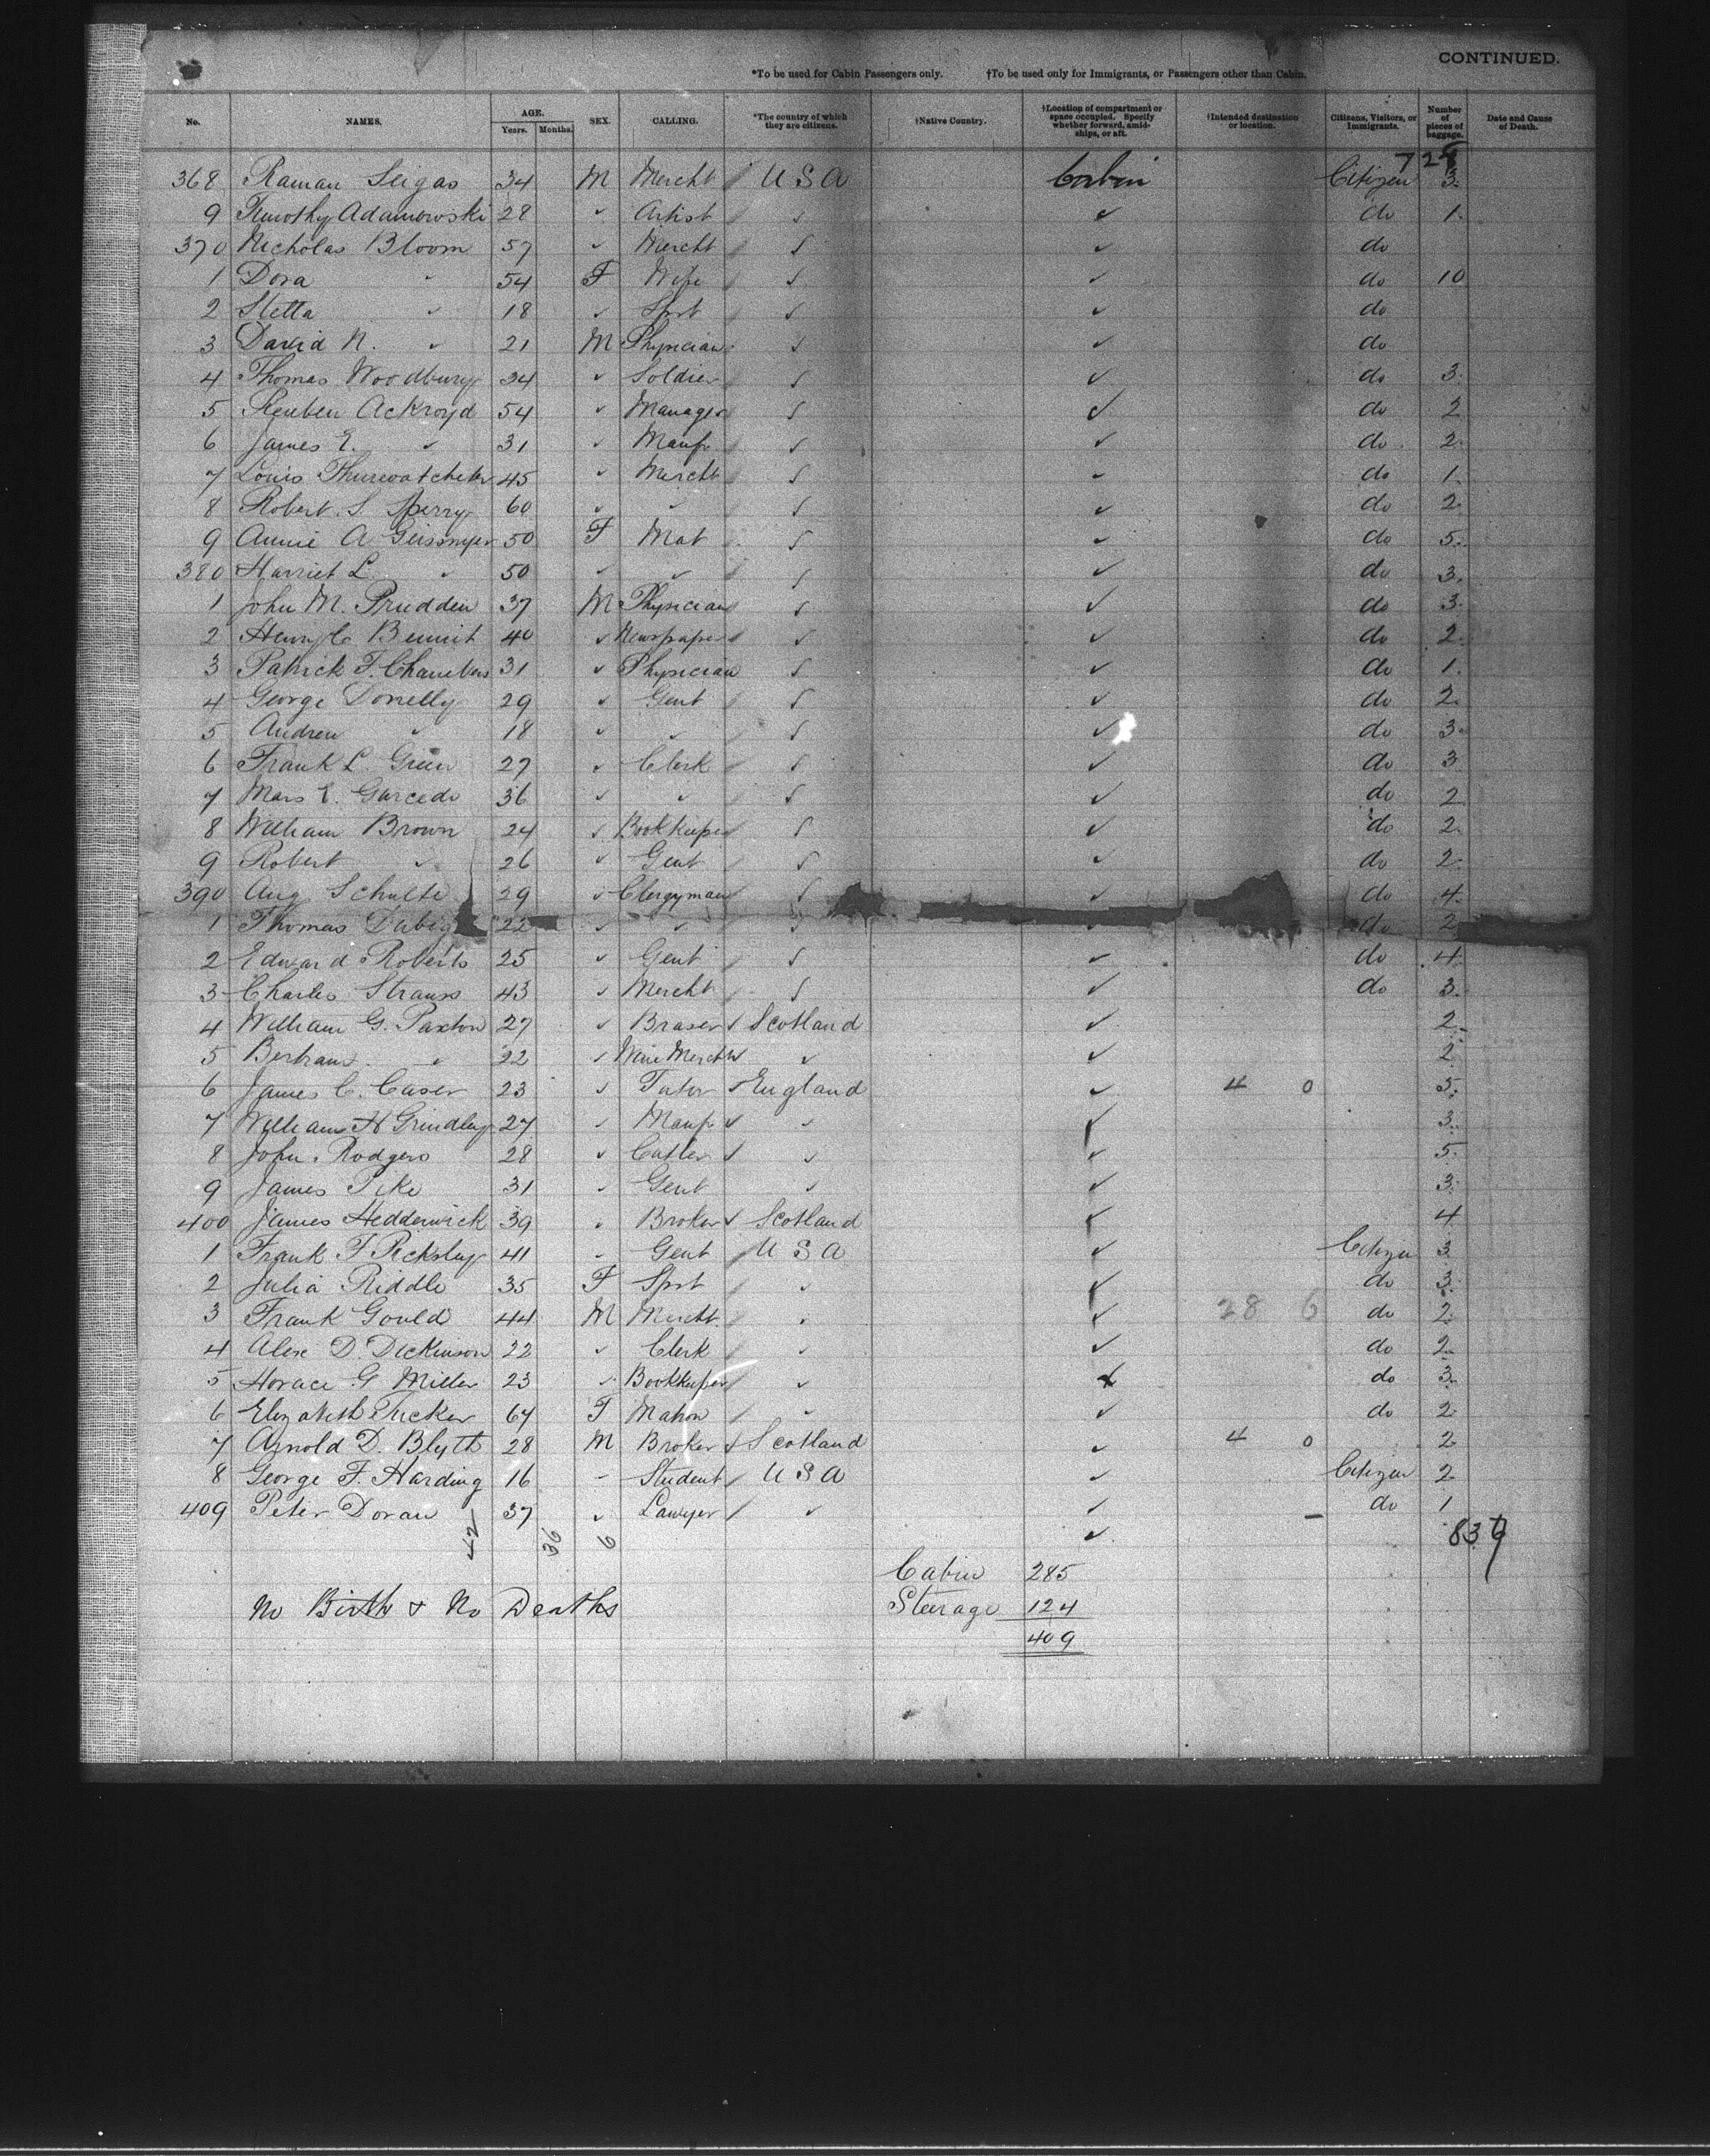 CONTINUED.
*To be used for Cabin Passengers only. †To be used only for Immigrants, or Passengers other than Cabin.
No. NAMES. AGE. Years. Months. SEX. CALLING. *The country of which they are citizens. †Native Country. †Location of compartment or space occupied. Specify whether forward, amidships, or aft. †Intended destination or location. Citizens, Visitors, or Immigrants. Number of pieces of baggage. Date and Cause of Death.
728
368 Raman Seigas 34 M Mercht U S A Cabin Citizen 3
9 Timothy Adamowski 28 " Artist " " do 1
370 Nicholas Bloom 57 " Mercht " " do
1 Dora " 54 F Wife " " do 10
2 Stella " 18 " Spst " " do
3 David N. " 21 M Physician " " do
4 Thomas Woodbury 34 " Soldier " " do 3
5 Reuben Ackroyd 54 " Manager " " do 2
6 James E. " 31 " Manfr " " do 2
7 Louis 45 " Mercht " " do 1
8 Robert S. Sperry 60 " " " " do 2
9 Annie A 50 F Mat " " do 5
380 Harriet L. " 50 " " " " do 3
1 John M. Prudden 37 M Physician " " do 3
2 Henry C 40 " Newspaper " " do 2
3 Patrick F. Chambers 31 " Physician " " do 1
4 George Donelly 29 " Gent " " do 2
5 Andrew " 18 " " " " do 3
6 Frank L. 27 " Clerk " " do 3
7 Mars E. Garcedo 36 " " " " do 2
8 William Brown 24 " Bookkeeper " " do 2
9 Robert " 26 " Gent " " do 2
390 Aug Schulte 29 " Clergyman " " do 4
1 Thomas 22 " " " " do 2
2 Edward Roberts 25 " Gent " " do 4
3 Charles Strauss 43 " Mercht " " do 3
4 William G. Paxton 27 " Scotland " 2
5 " 22 " Wine Mercht " " 2
6 James C. 23 " England " 4 0 5
7 William H Grindley 27 " Manfr " " 3
8 John Rodgers 28 " Cutler " " 5
9 James Pike 31 " Gent " " 3
400 James Hedderwick 39 " Broker Scotland " 4
1 Frank T 41 " Gent U S A " Citizen 3
2 Julia Riddle 35 F Spst " " do 3
3 Frank Gould 44 M Mercht. " " 28 6 do 2
4 Alex D. Dickinson 22 " Clerk " " do 2
5 Horace G Miller 23 " Bookkeeper " " do 3
6 Elizabeth Tucker 64 F Matron " " do 2
7 Arnold D. Blyth 28 M Broker Scotland " 4 0 2
8 George F. Harding 16 " Student U S A " Citizen 2
409 Peter Doran 37 " Lawyer " " do 1
42 36 6
839
Cabin 285
No Birth & No Deaths Steerage 124
409